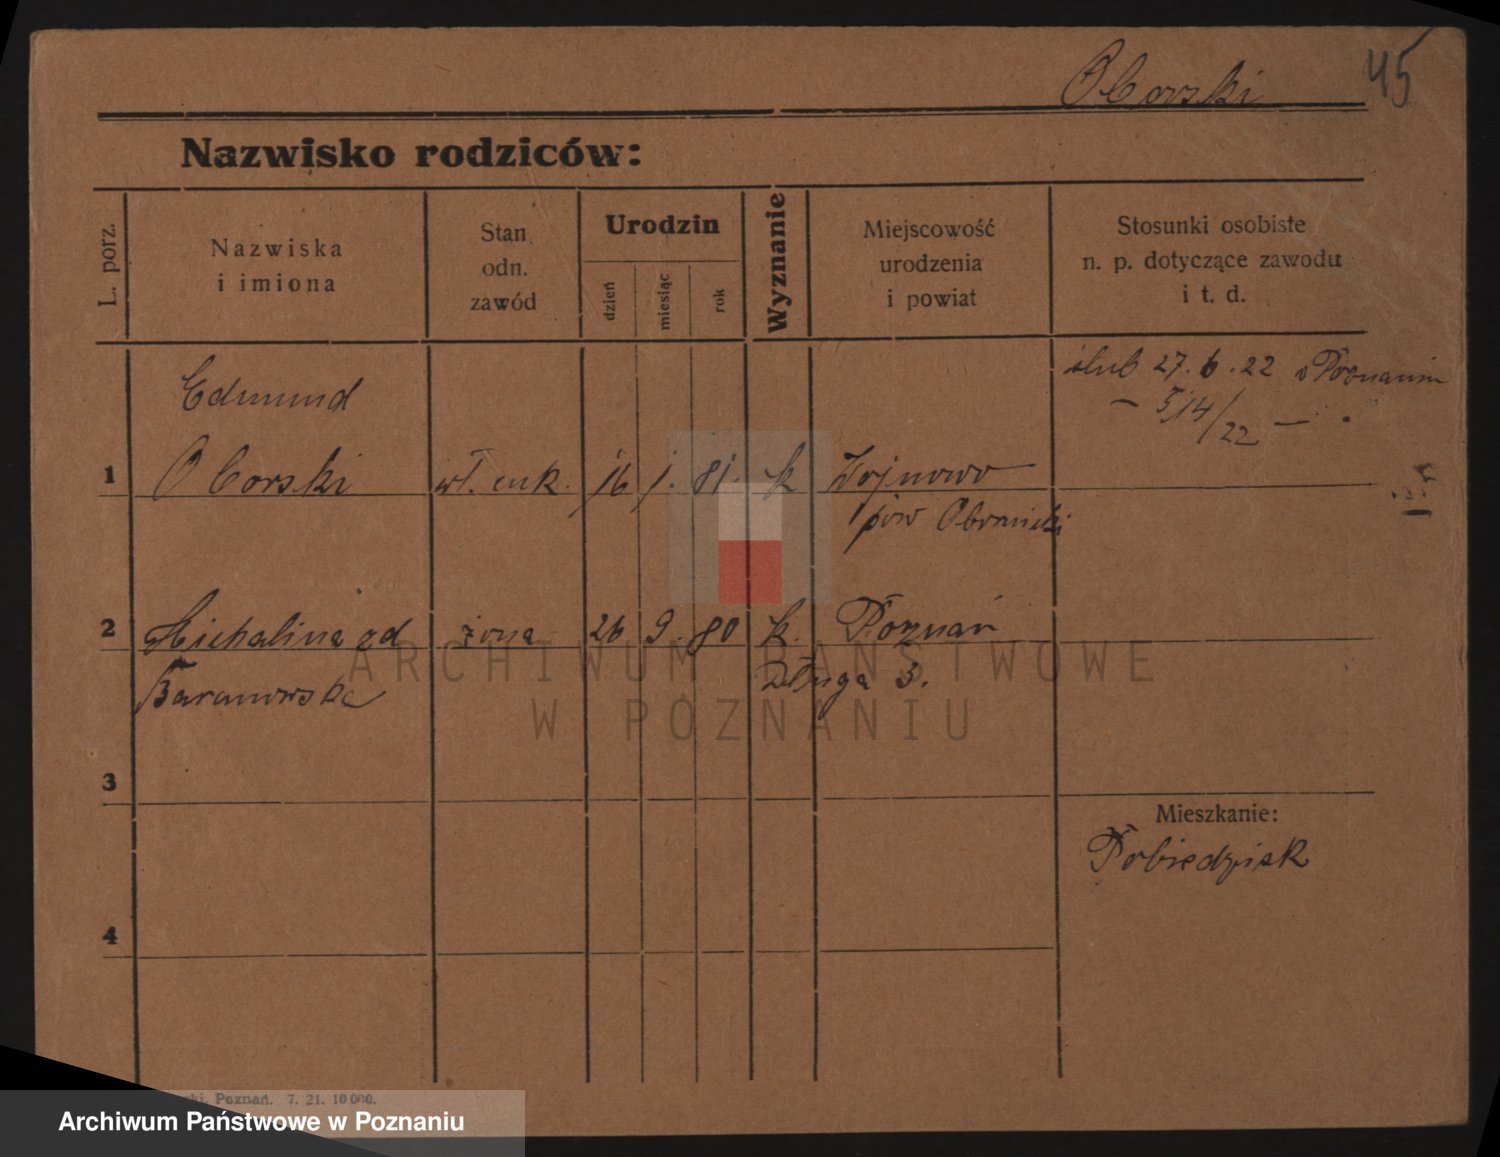 Oborski 45
Nazwisko rodziców:
L. porz.
Nazwiska
i imiona
Stan
odn.
zawód
Urodzin
dzień
miesiąc
rok
Wyznanie
Miejscowość
urodzenia
i powiat
Stosunki osobiste
n. p. dotyczące zawodu
i t. d.
ślub 27.6.22 w Poznaniu
— 514/22 — .
Edmund
1 Oborski wł. cuk. 16 1. 81. k Wojnowo
pow Obornicki
2 Michalina zd żona 26 9. 80 k. Poznań
Baranowska Długa 3.
3
Mieszkanie:
Pobiedzisk
4
Poznań. 7. 21. 10 000.
ARCHIWUM PAŃSTWOWE
W POZNANIU
Archiwum Państwowe w Poznaniu